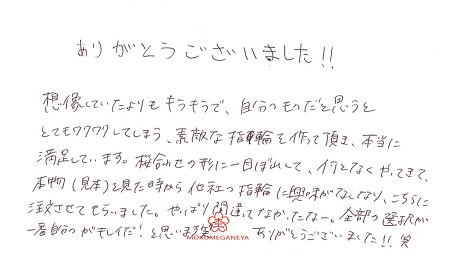 ありがとうございました!!
想像していたよりもキラキラで、自分のものだと思うと
とてもワクワクしてしまう、素敵な指輪を作って頂き、本当に
満足しています。桜合わせの形に一目ぼれして、
本物(見本)を見た時から他社の指輪に興味がなくなり、こちらに
注文させてもらいました。やっぱり間違ってなかったなー。全部の選択が
一番自分のがキレイだ!と思います
ありがとうございました!! 笑
MOKUMEGANEYA